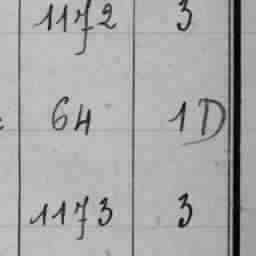 1172 3
64 1D
1173 3